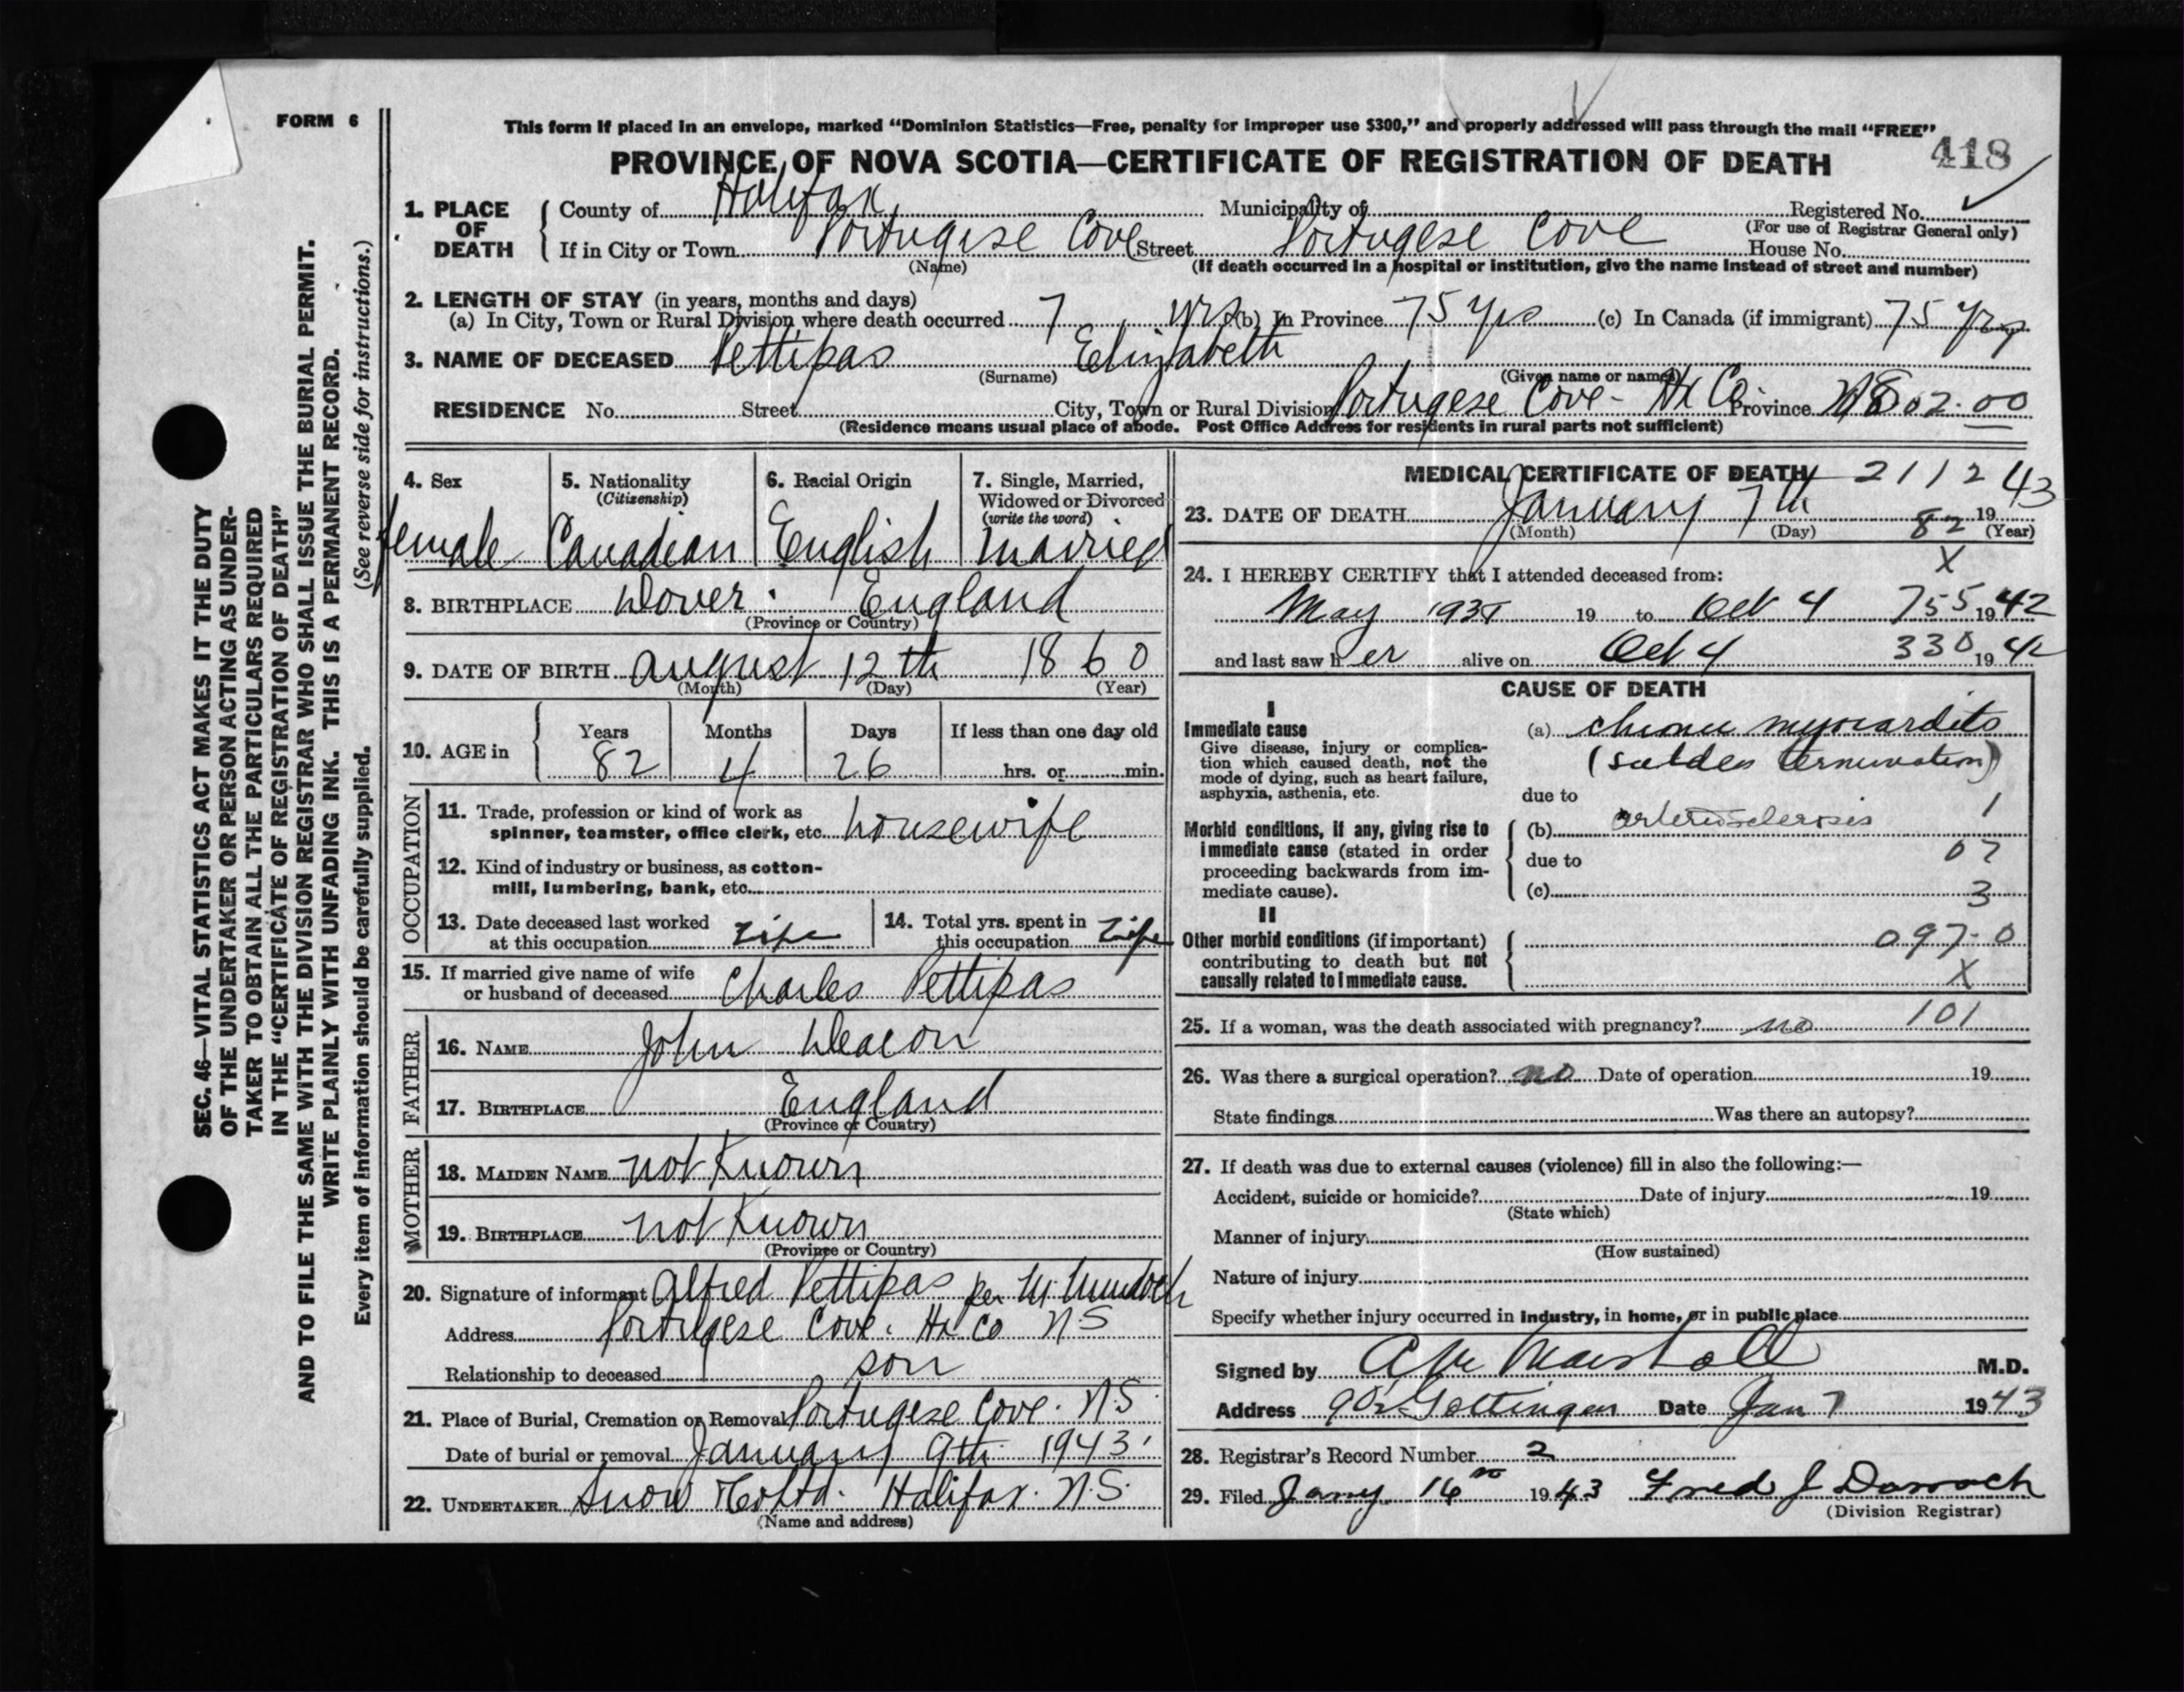 FORM 6
This form if placed in an envelope, marked “Dominion Statistics—Free, penalty for improper use $300,” and properly addressed will pass through the mail “FREE”
PROVINCE OF NOVA SCOTIA—CERTIFICATE OF REGISTRATION OF DEATH 418
1. PLACE OF DEATH County of Halifax Municipality of Registered No.
(For use of Registrar General only)
If in City or Town Portugese Cove Street Portugese Cove House No.
(Name) (If death occurred in a hospital or institution, give the name instead of street and number)
2. LENGTH OF STAY (in years, months and days)
(a) In City, Town or Rural Division where death occurred 7 yrs (b) In Province 75 Yrs (c) In Canada (if immigrant) 75 Yrs
3. NAME OF DECEASED Pettipas Elizabeth
(Surname) (Given name or names)
RESIDENCE No. Street City, Town or Rural Division Portugese Cove - Hx Co. Province NS 02.00
(Residence means usual place of abode. Post Office Address for residents in rural parts not sufficient)
4. Sex
female
5. Nationality
(Citizenship)
Canadian
6. Racial Origin
English
7. Single, Married,
Widowed or Divorced
(write the word)
married
8. BIRTHPLACE Dover. England
(Province or Country)
9. DATE OF BIRTH August 12th 1860
(Month) (Day) (Year)
10. AGE in Years Months Days If less than one day old
82 4 26 hrs. or min.
OCCUPATION
11. Trade, profession or kind of work as
spinner, teamster, office clerk, etc. housewife
12. Kind of industry or business, as cotton-
mill, lumbering, bank, etc.
13. Date deceased last worked
at this occupation Life
14. Total yrs. spent in
this occupation Life
15. If married give name of wife
or husband of deceased Charles Pettipas
FATHER
16. NAME John Deacon
17. BIRTHPLACE England
(Province or Country)
MOTHER
18. MAIDEN NAME not Known
19. BIRTHPLACE not Known
(Province or Country)
20. Signature of informant Alfred Pettipas per M.
Address Portugese Cove. Hx Co N S
Relationship to deceased son
21. Place of Burial, Cremation or Removal Portugese Cove. N.S.
Date of burial or removal January 9th 1943
22. UNDERTAKER Snow & Co Ltd. Halifax. N.S.
(Name and address)
MEDICAL CERTIFICATE OF DEATH 21 12
23. DATE OF DEATH January 7th 1943
(Month) (Day) 82 (Year)
X
24. I HEREBY CERTIFY that I attended deceased from:
May 19 to Oct 4 755 1942
and last saw her alive on Oct 4 330 1942
CAUSE OF DEATH
I
Immediate cause
Give disease, injury or complica-
tion which caused death, not the
mode of dying, such as heart failure,
asphyxia, asthenia, etc.
(a) chronic myocarditis
(sudden termination)
due to
Morbid conditions, if any, giving rise to
immediate cause (stated in order
proceeding backwards from im-
mediate cause).
(b) arteriosclerosis 1
due to 07
(c) 3
II
Other morbid conditions (if important)
contributing to death but not
causally related to immediate cause.
097.0
X
25. If a woman, was the death associated with pregnancy? no 101
26. Was there a surgical operation? no Date of operation 19
State findings Was there an autopsy?
27. If death was due to external causes (violence) fill in also the following:—
Accident, suicide or homicide? Date of injury 19
(State which)
Manner of injury
(How sustained)
Nature of injury
Specify whether injury occurred in industry, in home, or in public place
Signed by Marshall M.D.
Address Gottingen Date Jan 7 1943
28. Registrar's Record Number 2
29. Filed Jany 16 1943 Fred J Darroch
(Division Registrar)
SEC. 46—VITAL STATISTICS ACT MAKES IT THE DUTY
OF THE UNDERTAKER OR PERSON ACTING AS UNDER-
TAKER TO OBTAIN ALL THE PARTICULARS REQUIRED
IN THE “CERTIFICATE OF REGISTRATION OF DEATH”
AND TO FILE THE SAME WITH THE DIVISION REGISTRAR WHO SHALL ISSUE THE BURIAL PERMIT.
WRITE PLAINLY WITH UNFADING INK. THIS IS A PERMANENT RECORD.
Every item of information should be carefully supplied. (See reverse side for instructions.)